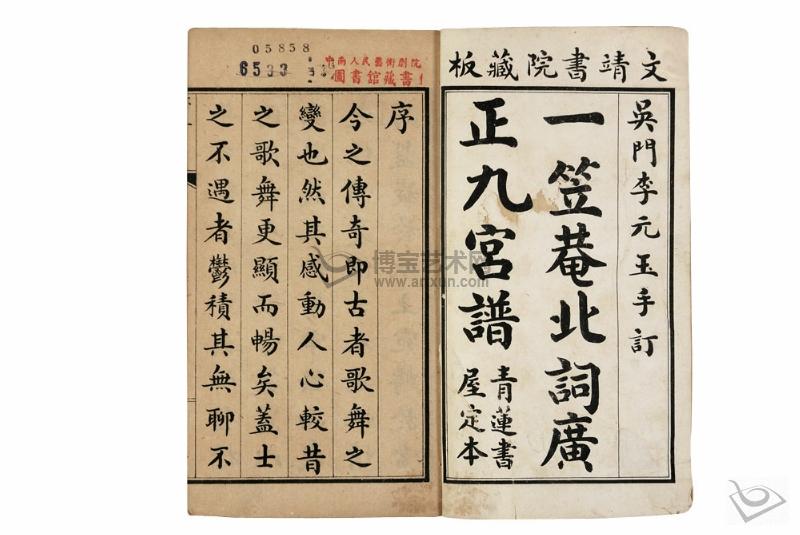 文靖書院藏板
吳門李元玉手訂
一笠菴北詞廣
正九宮譜
青蓮書
屋定本
05858
6533
中南人民藝術劇院
圖書館藏書
序
今之傳奇即古者歌舞之
變也然其感動人心較昔
之歌舞更顯而暢矣蓋士
之不遇者鬱積其無聊不
博宝艺术网
www.artxun.com